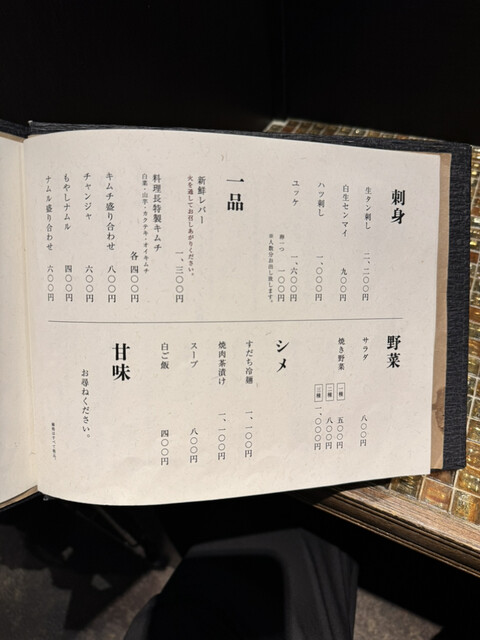 刺身
生タン刺し 二、二〇〇円
白生センマイ 九〇〇円
ハツ刺し 一、〇〇〇円
ユッケ 一、六〇〇円
卵一つ 一〇〇円
※人数分お出し致します。
一品
新鮮レバー 一、三〇〇円
火を通してお召しあがりください。
料理長特製キムチ 各 四〇〇円
白菜・山芋・カクテキ・オイキムチ
キムチ盛り合わせ 八〇〇円
チャンジャ 六〇〇円
もやしナムル 四〇〇円
ナムル盛り合わせ 六〇〇円
野菜
サラダ 八〇〇円
焼き野菜 一種 五〇〇円
二種 八〇〇円
三種 一、〇〇〇円
シメ
すだち冷麺 一、一〇〇円
焼肉茶漬け 一、一〇〇円
スープ 八〇〇円
白ご飯 四〇〇円
甘味
お尋ねください。